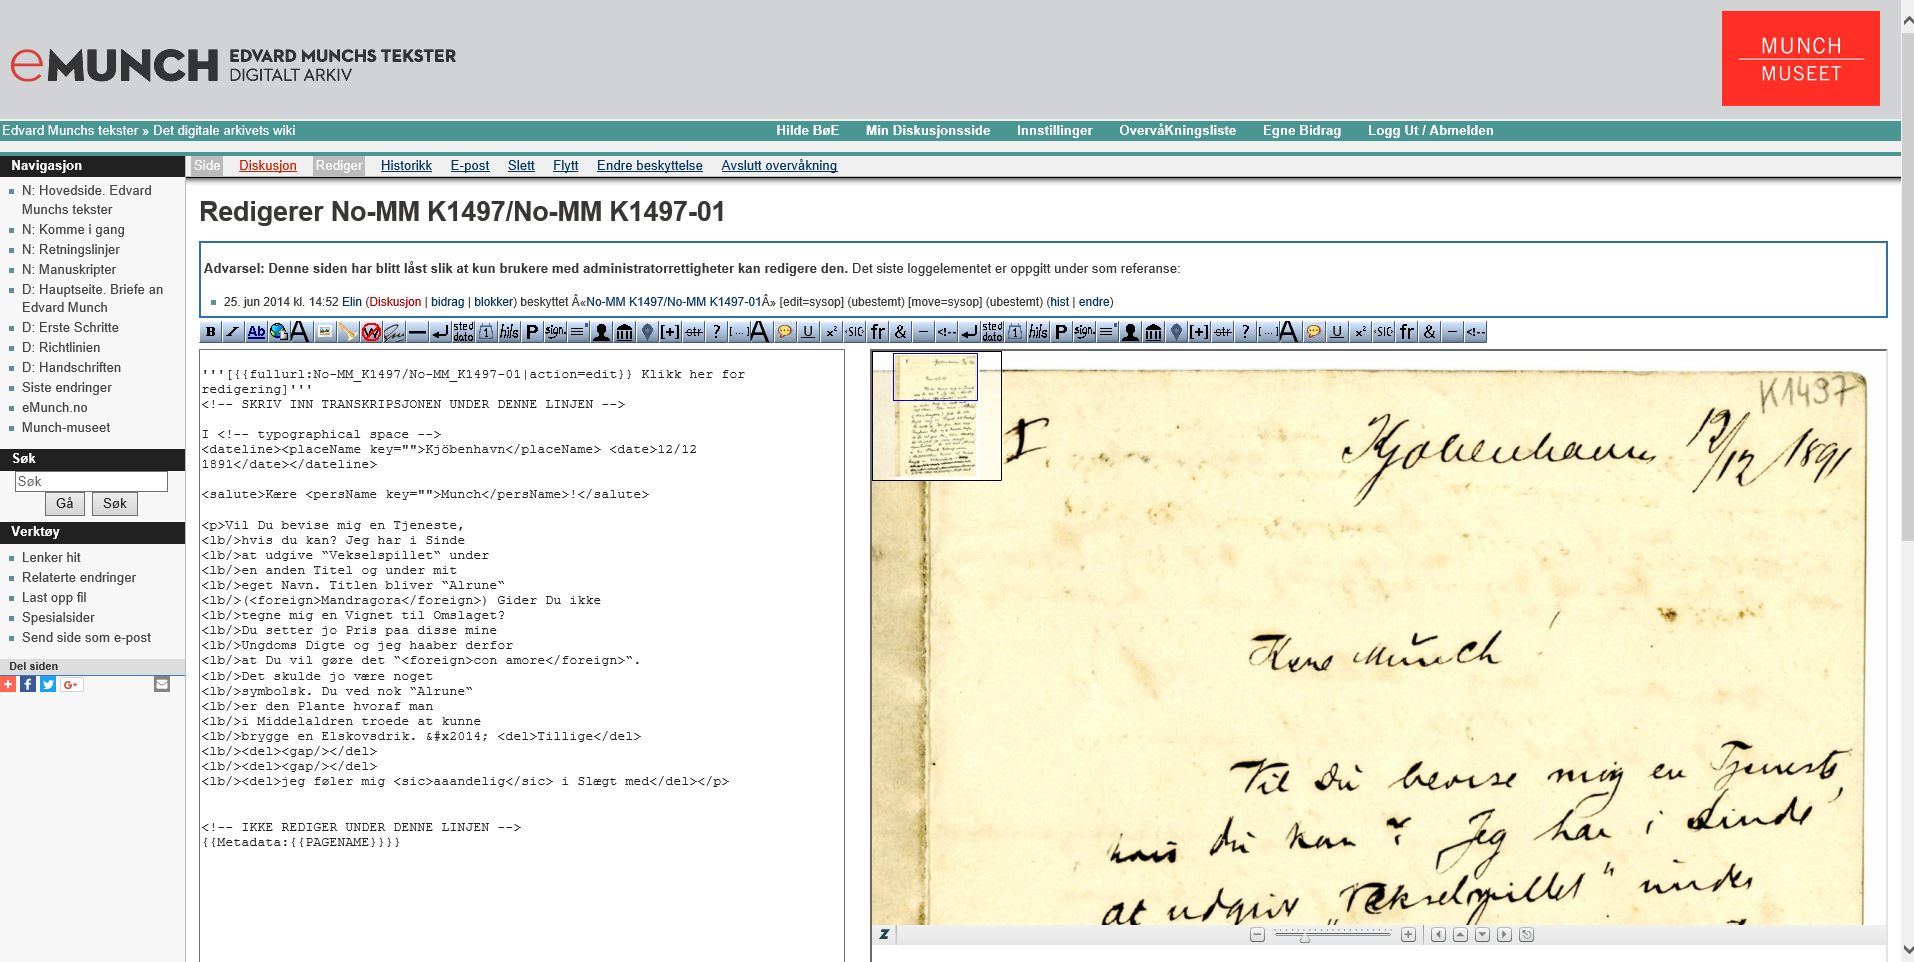 eMUNCH EDVARD MUNCHS TEKSTER
DIGITALT ARKIV
MUNCH
MUSEET
Edvard Munchs tekster » Det digitale arkivets wiki
Hilde BøE Min Diskusjonsside Innstillinger OvervåKningsliste Egne Bidrag Logg Ut / Abmelden
Navigasjon
N: Hovedside. Edvard
Munchs tekster
N: Komme i gang
N: Retningslinjer
N: Manuskripter
D: Hauptseite. Briefe an
Edvard Munch
D: Erste Schritte
D: Richtlinien
D: Handschriften
Siste endringer
eMunch.no
Munch-museet
Søk
Søk
Gå Søk
Verktøy
Lenker hit
Relaterte endringer
Last opp fil
Spesialsider
Send side som e-post
Del siden
G+
Side Diskusjon Rediger Historikk E-post Slett Flytt Endre beskyttelse Avslutt overvåkning
Redigerer No-MM K1497/No-MM K1497-01
Advarsel: Denne siden har blitt låst slik at kun brukere med administratorrettigheter kan redigere den. Det siste loggelementet er oppgitt under som referanse:
25. jun 2014 kl. 14:52 Elin (Diskusjon | bidrag | blokker) beskyttet Â«No-MM K1497/No-MM K1497-01Â» [edit=sysop] (ubestemt) [move=sysop] (ubestemt) (hist | endre)
'''[{{fullurl:No-MM_K1497/No-MM_K1497-01|action=edit}} Klikk her for
redigering]'''
<!-- SKRIV INN TRANSKRIPSJONEN UNDER DENNE LINJEN -->
I <!-- typographical space -->
<dateline><placeName key="">Kjöbenhavn</placeName> <date>12/12
1891</date></dateline>
<salute>Kære <persName key="">Munch</persName>!</salute>
<p>Vil Du bevise mig en Tjeneste,
<lb/>hvis du kan? Jeg har i Sinde
<lb/>at udgive “Vekselspillet“ under
<lb/>en anden Titel og under mit
<lb/>eget Navn. Titlen bliver “Alrune“
<lb/>(<foreign>Mandragora</foreign>) Gider Du ikke
<lb/>tegne mig en Vignet til Omslaget?
<lb/>Du setter jo Pris paa disse mine
<lb/>Ungdoms Digte og jeg haaber derfor
<lb/>at Du vil gøre det “<foreign>con amore</foreign>“.
<lb/>Det skulde jo være noget
<lb/>symbolsk. Du ved nok “Alrune“
<lb/>er den Plante hvoraf man
<lb/>i Middelaldren troede at kunne
<lb/>brygge en Elskovsdrik. &#x2014; <del>Tillige</del>
<lb/><del><gap/></del>
<lb/><del><gap/></del>
<lb/><del>jeg føler mig <sic>aaandelig</sic> i Slægt med</del></p>
<!-- IKKE REDIGER UNDER DENNE LINJEN -->
{{Metadata:{{PAGENAME}}}}
K1497
I Kjöbenhavn 12/12 1891
Kære Munch!
Vil Du bevise mig en Tjeneste,
hvis du kan? Jeg har i Sinde
at udgive „Vekselspillet“ under